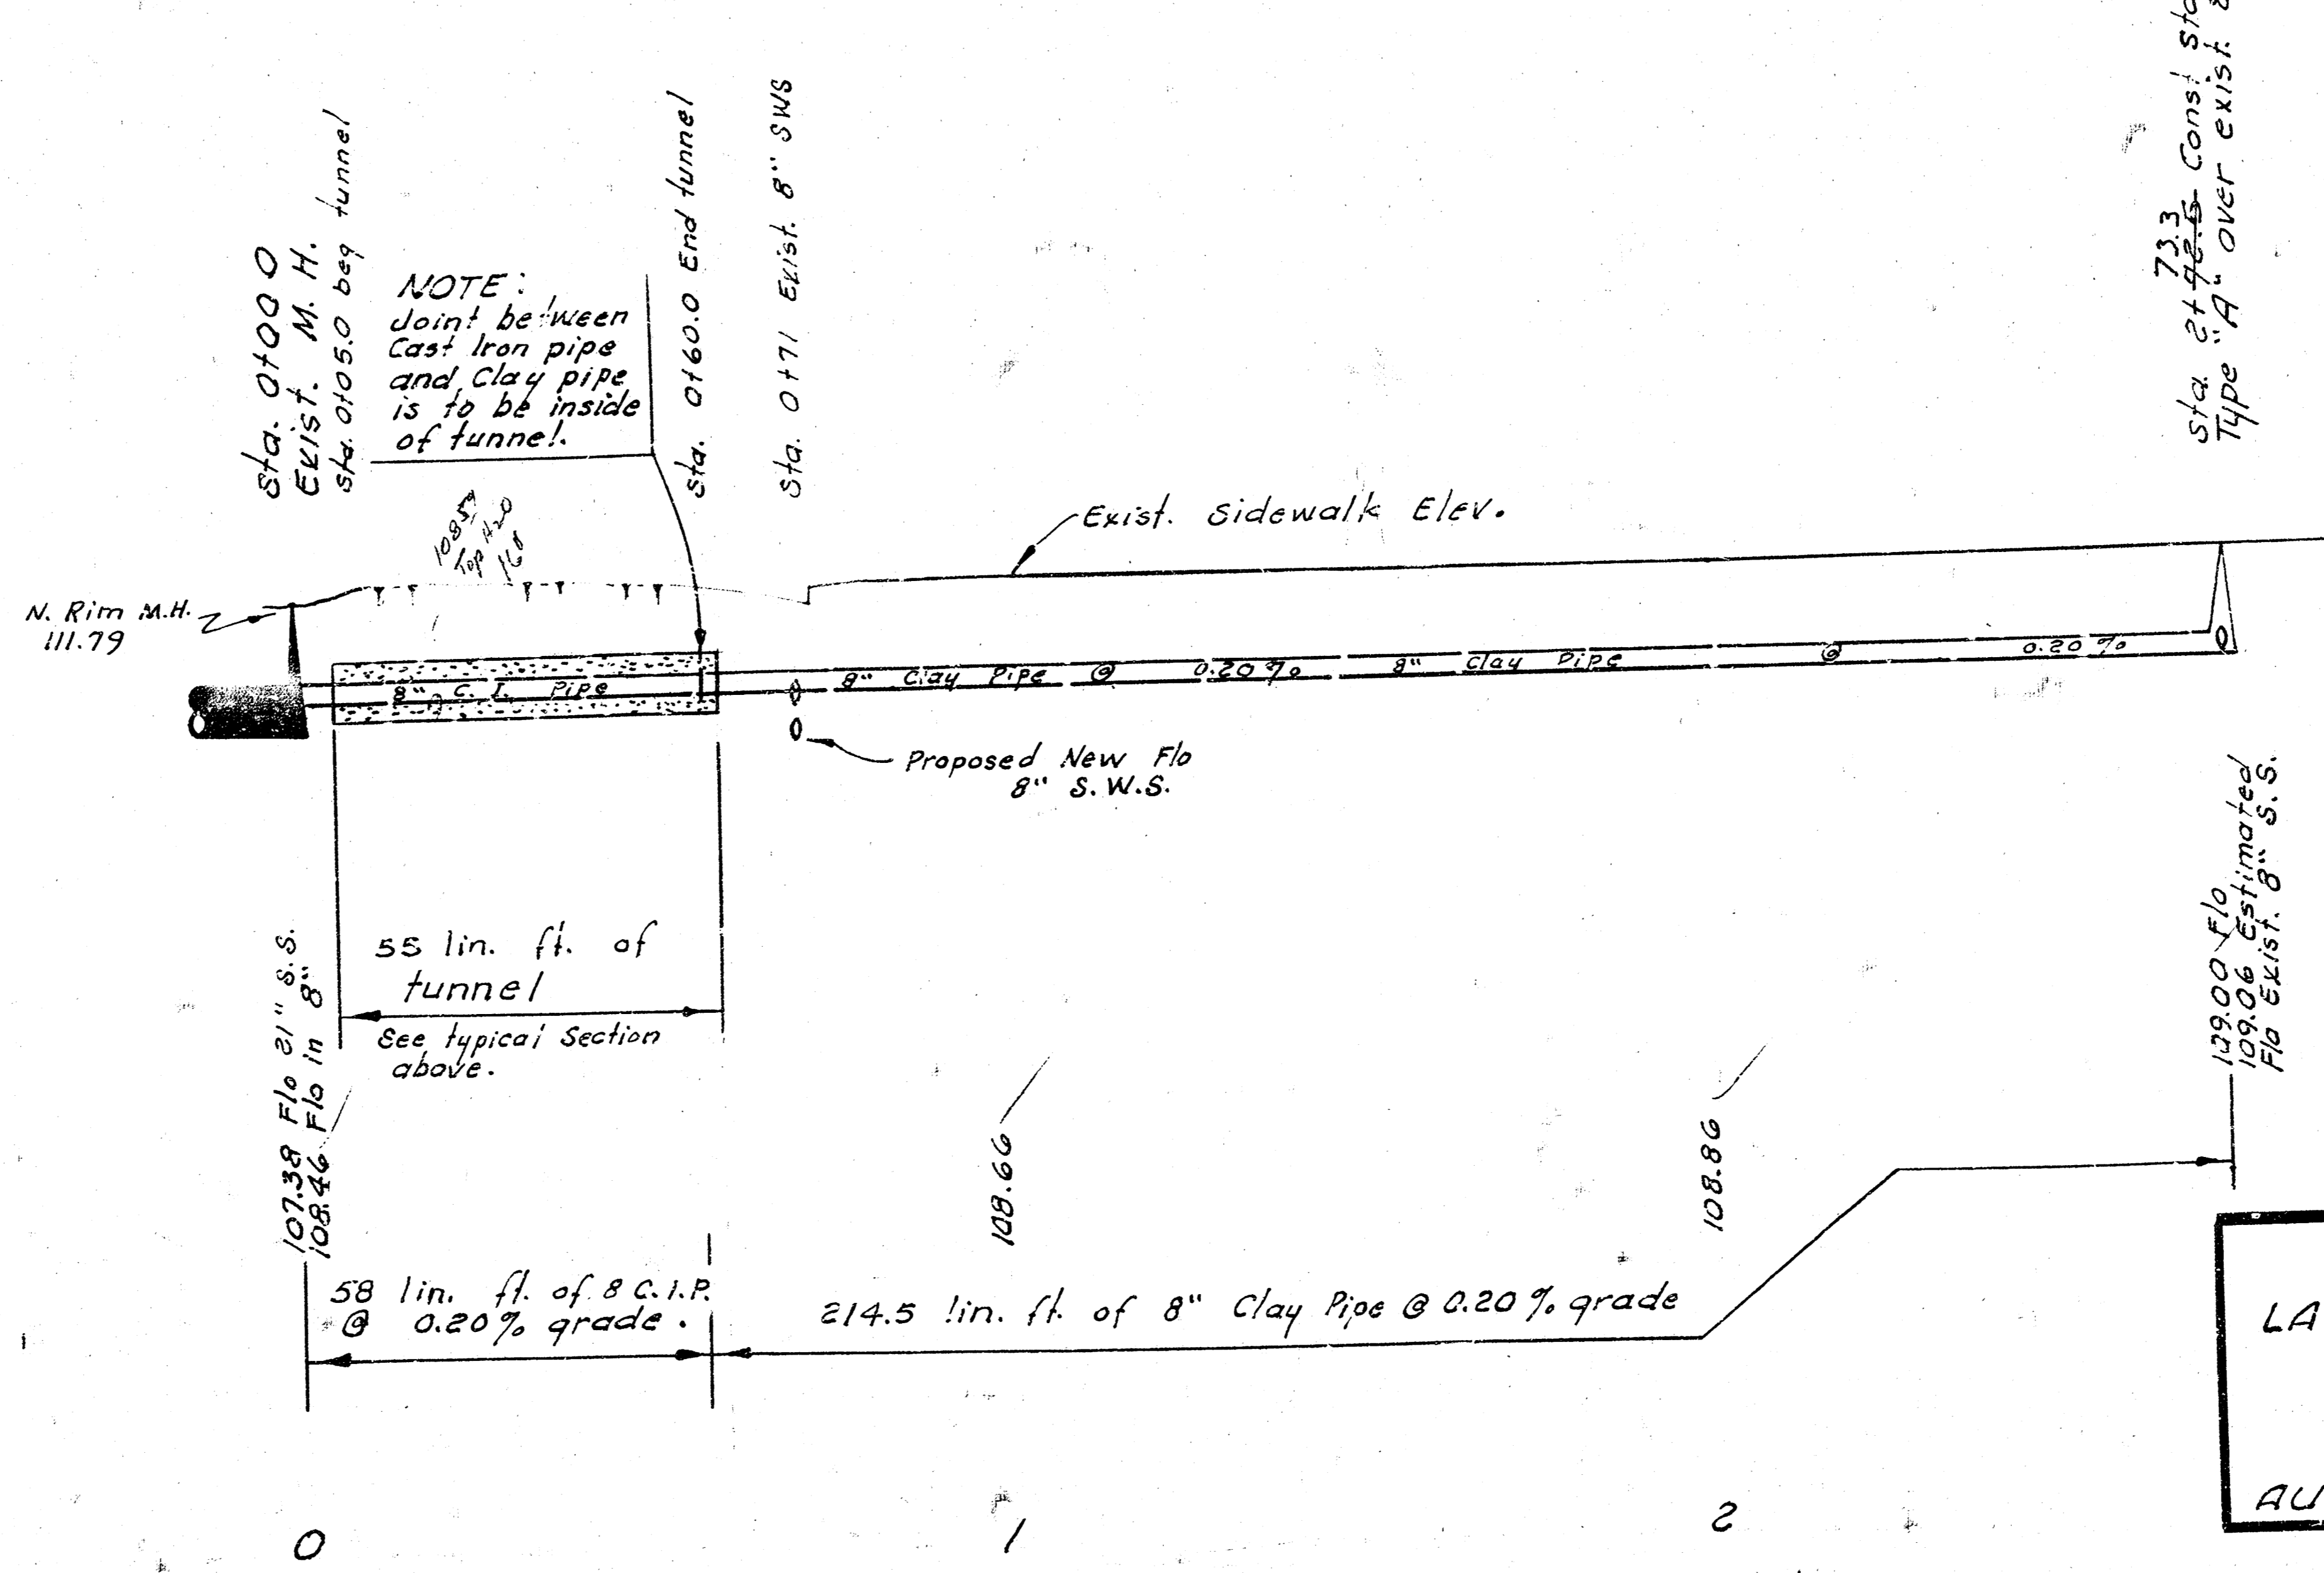 Sta. 0+00 0
Exist. M. H.
Sta. 0+05.0 beg tunnel
NOTE:
Joint between
Cast Iron pipe
and Clay pipe
is to be inside
of tunnel.
Sta. 0+60.0 End tunnel
Sta. 0+71 Exist. 8" SWS
73.3
Sta. 2+72.5 Const
Type "A" over exist.
Top
Exist. Sidewalk Elev.
N. Rim M.H.
111.79
8" C. I. Pipe
8" Clay Pipe @ 0.20% 8" Clay Pipe @ 0.20%
Proposed New Flo
8" S.W.S.
55 lin. ft. of
tunnel
See typical Section
above.
107.38 Flo 21" S.S.
108.46 Flo in 8"
108.66
108.86
109.00 Flo
109.06 Estimated
Flo Exist. 8" S.S.
58 lin. ft. of 8 C.I.P.
@ 0.20% grade.
214.5 lin. ft. of 8" Clay Pipe @ 0.20% grade
LA
AU
0 1 2